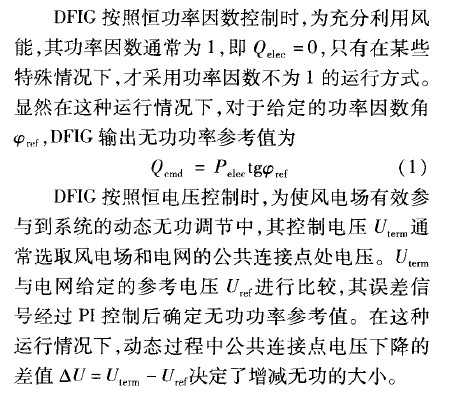 DFIG 按照恒功率因数控制时,为充分利用风
能,其功率因数通常为 1,即 Q_elec = 0,只有在某些
特殊情况下,才采用功率因数不为 1 的运行方式。
显然在这种运行情况下,对于给定的功率因数角
φ_ref,DFIG 输出无功功率参考值为
Q_cmd = P_elec tgφ_ref (1)
DFIG 按照恒电压控制时,为使风电场有效参
与到系统的动态无功调节中,其控制电压 U_term 通
常选取风电场和电网的公共连接点处电压。U_term
与电网给定的参考电压 U_ref 进行比较,其误差信
号经过 PI 控制后确定无功功率参考值。在这种
运行情况下,动态过程中公共连接点电压下降的
差值 ΔU = U_term − U_ref 决定了增减无功的大小。